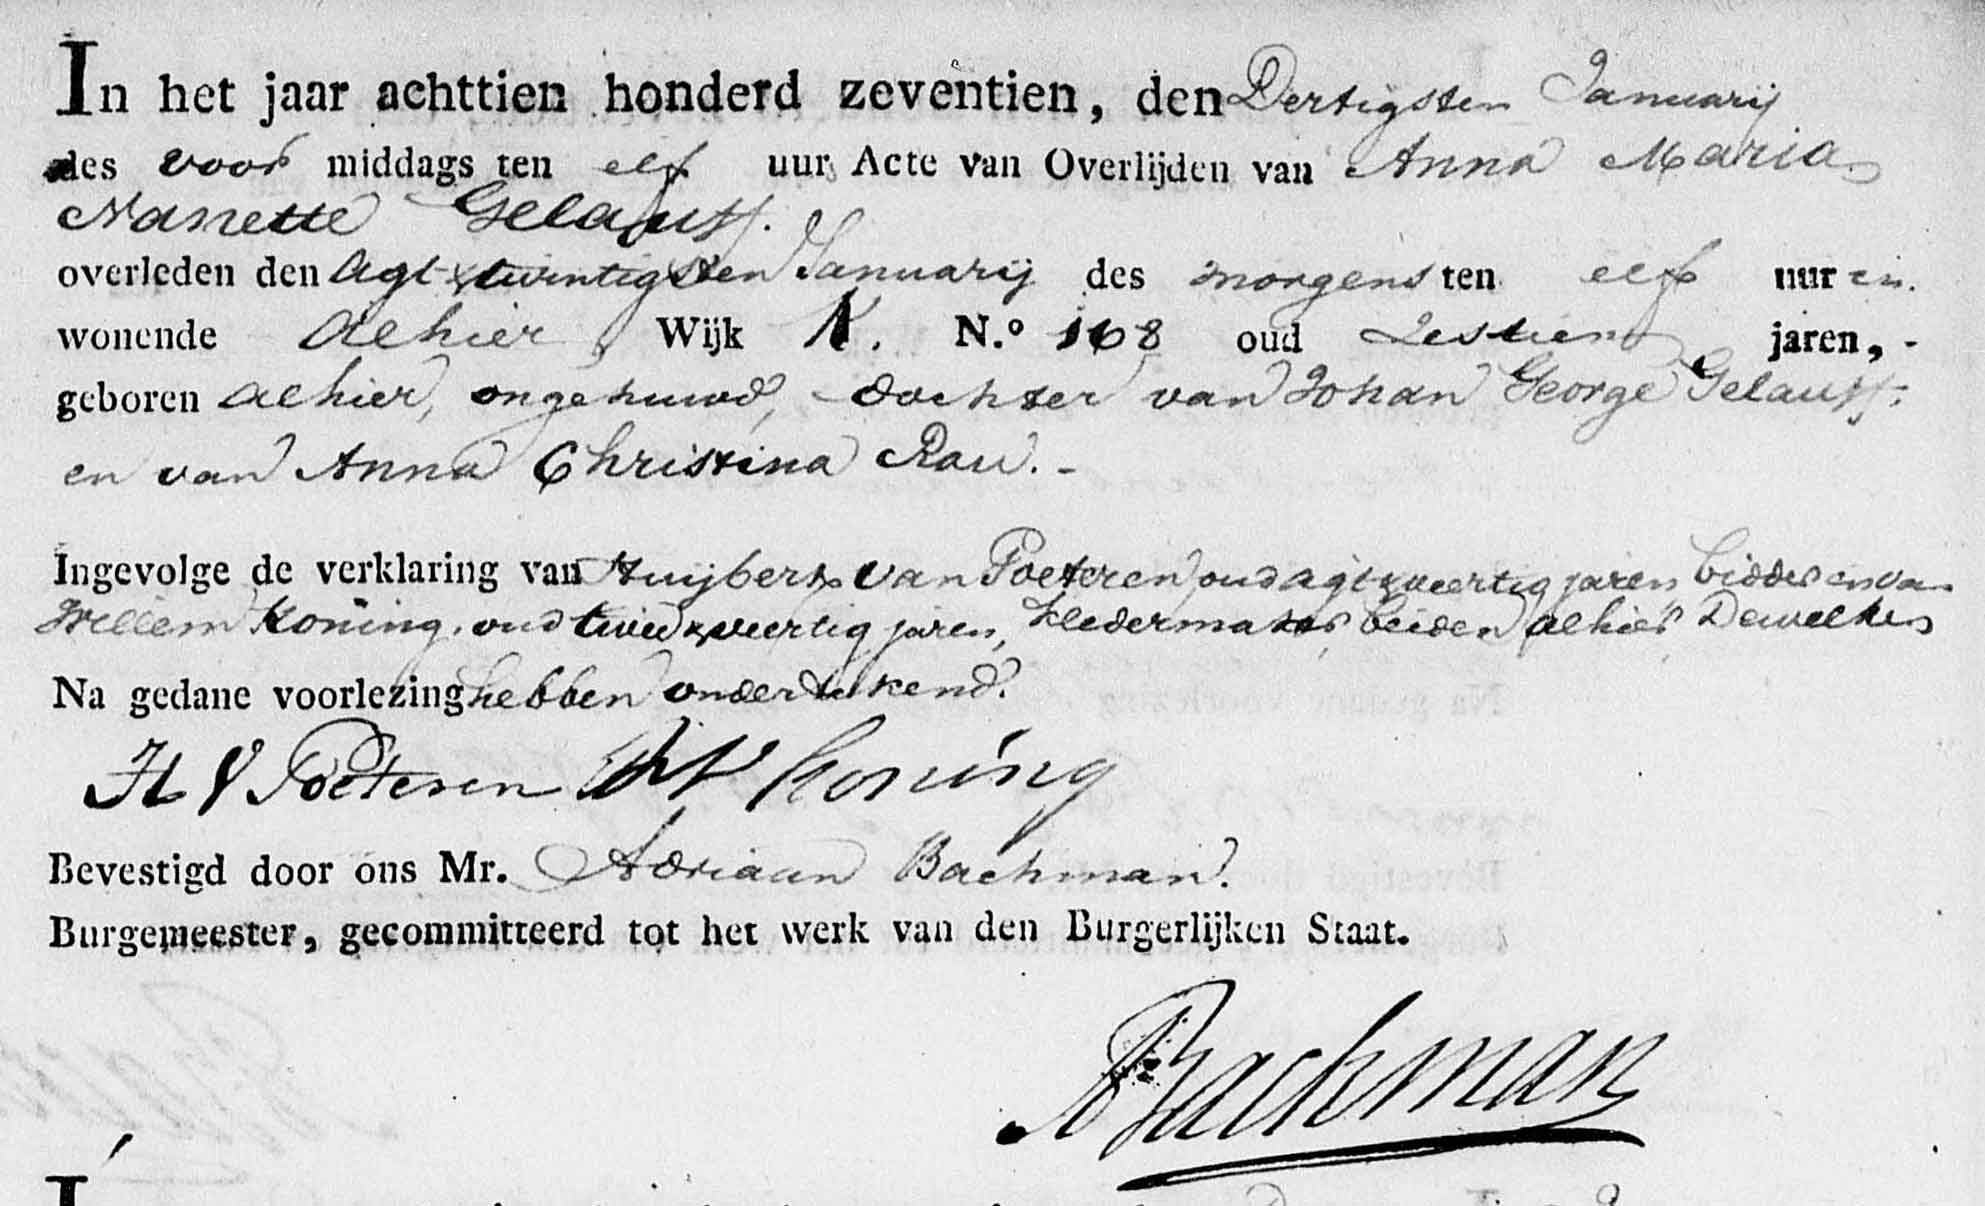 In het jaar achttien honderd zeventien, den Dertigsten Januarij
des voor middags ten elf uur, Acte van Overlijden van Anna Maria
Nanette Gelauff.
overleden den agt & twintigsten Januarij des morgens ten elf uur en
wonende alhier, Wijk K. N.o 168 oud Zestien jaren, -
geboren alhier, ongehuwd, dochter van Johan George Gelauff.
en van Anna Christina Rau. -
Ingevolge de verklaring van Huijbert van Poeteren oud agt & veertig jaren bidder en van
Willem Koning, oud twee & veertig jaren, kledermaker, beiden alhier, Dewelken
Na gedane voorlezing hebben ondertekend.
H V Poeteren W Koning
Bevestigd door ons Mr. Adriaan Bachman.
Burgemeester, gecommitteerd tot het werk van den Burgerlijken Staat.
ABachman